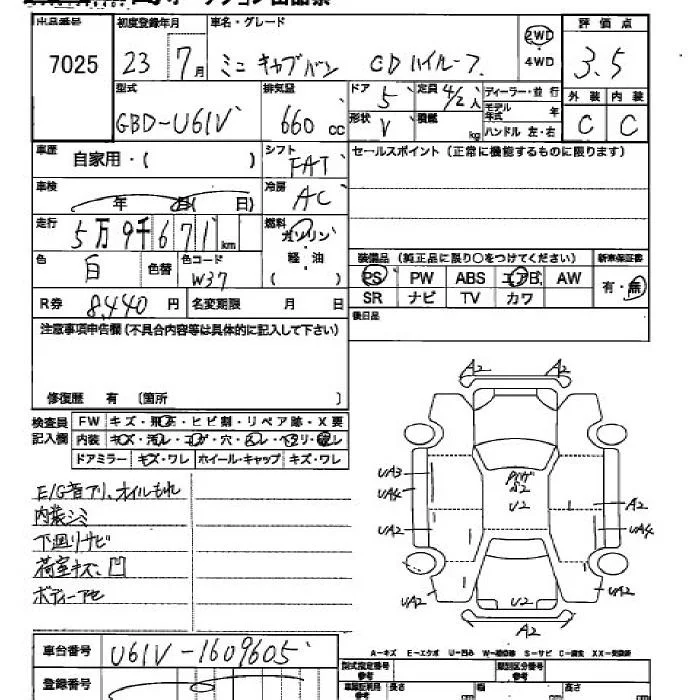 出品番号 初度登録年月 車名・グレード 評価点
7025 23 7月 ミニキャブバン CDハイルーフ 2WD 4WD 3.5
型式 排気量 ドア 5 定員 4/2人 ディーラー・並行 外装 内装
GBD-U61V 660cc 形状 V 積載 kg モデル年式 年 C C
ハンドル 左・右
車歴 自家用・( ) シフト FAT セールスポイント(正常に機能するものに限ります)
車検 年 月( 日) 冷房 AC
走行 5万9千671km 燃料 ガソリン・軽・油( )
色 白 色替 色コード W37
装備品(純正品に限り○をつけてください) 新車保証書
PS PW ABS エアB AW 有・無
SR ナビ TV カワ
R券 8,440円 名変期限 月 日 後日品
注意事項申告欄(不具合内容等は具体的に記入して下さい)
修復歴 有 〔箇所 〕
検査員記入欄 FW キズ・飛石・ヒビ割・リペア跡・X要
内装 キズ・汚レ・コゲ・穴・
ドアミラー キズ・ワレ ホイール・キャップ キズ・ワレ
E/G音アリ、オイルもれ
内装シミ
下廻りサビ
荷室キズ、凹
ボディーアセ
A2 A2
UA3
UA4
S2
U2
A2
UA2 UA4
UA2 U2 UA2
A2
車台番号 U61V-1609605
A-キズ E-エクボ U-凹み W-補修跡 S-サビ C-腐食 XX-交換済
登録番号
型式指定番号 類別区分番号
長さ 幅 高さ